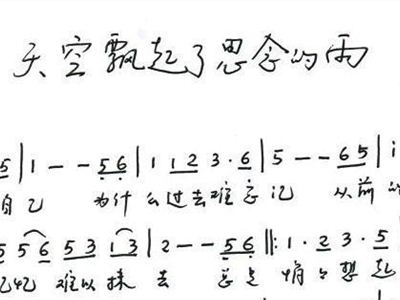 天空飘起了思念的雨
5 | 1 - - 5 6 | 1 1 2 3 · 6 | 5 - - 6 5 | i
自己 为什么过去难忘记 从前的
5 5 6 5 3 1 3 | 2 - - 5 6 ‖: 1 · 2 3 · 5
记忆 难以抹去 总是 悄悄想起